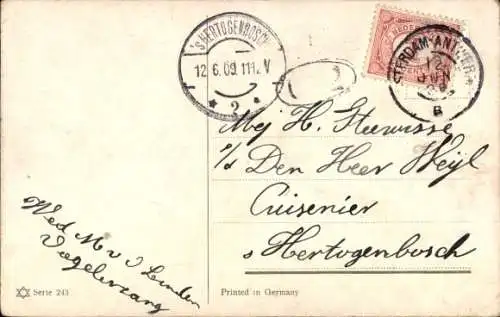 'sHERTOGENBOSCH
12 6.09.11 12.V
* 2 *
NEDERLAND
STERDAM-ANTWER
12 JUN
B
Mej H. Steewisse
c/d Den Heer Weijl
Cuisenier
s Hertogenbosch
Wed M v d Linden
Vogelenzang
Serie 243
Printed in Germany